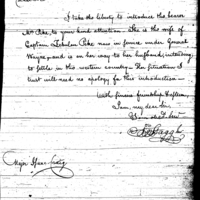 I take the liberty to introduce the bearer
Mrs Pike to your kind attention. She is the wife of
Captain Zebulon Pike now in service under General
Wayne and is on her way to her husband intending
to settle in this western country. The situation I
trust will need no apology for this introduction
With sincere friendship
I am, my dear Sir,
Major Isaac Craig